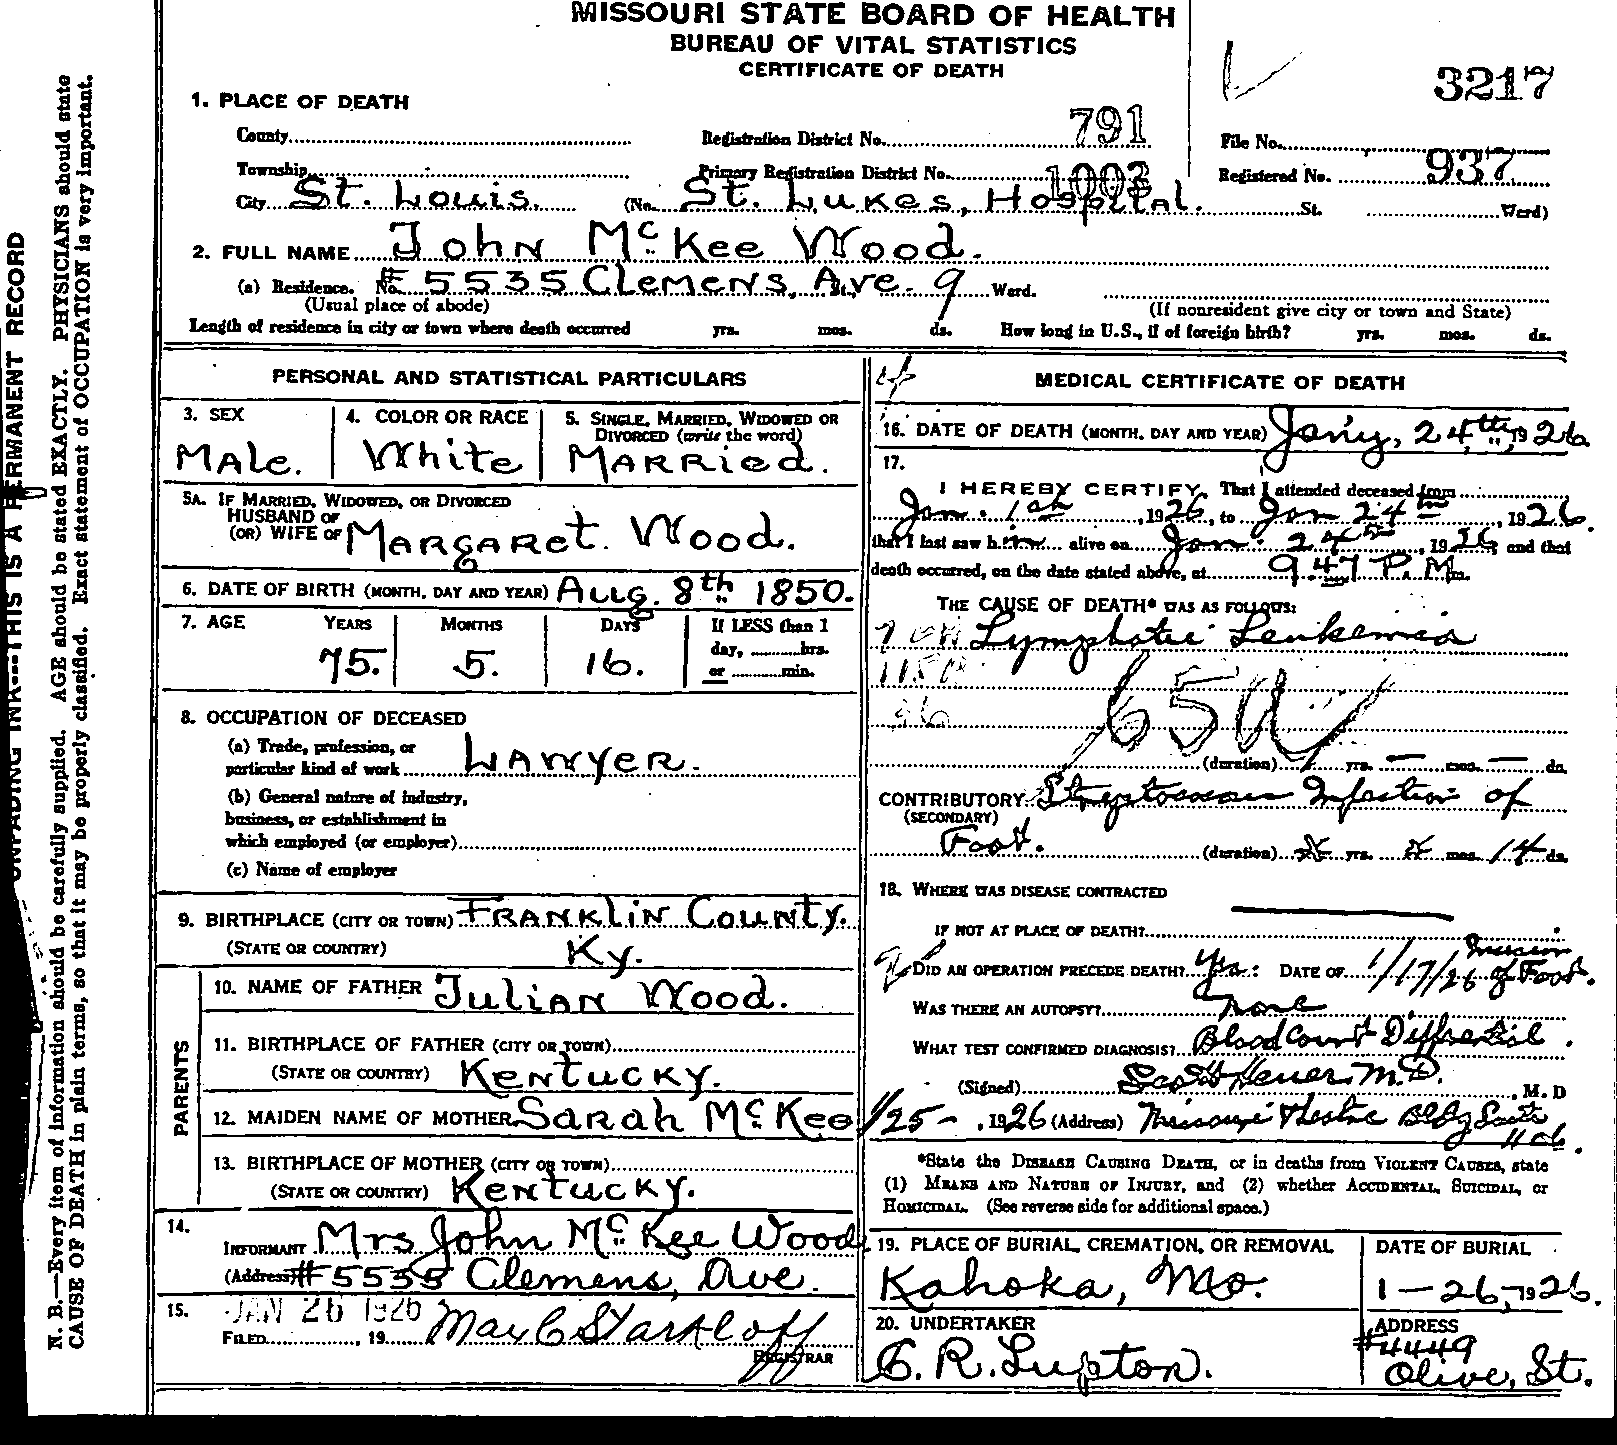 MISSOURI STATE BOARD OF HEALTH
BUREAU OF VITAL STATISTICS
CERTIFICATE OF DEATH
3217
1. PLACE OF DEATH
County
Registration District No. 791
File No.
Township
Primary Registration District No. 1003
Registered No. 937
City St. Louis. (No. St. Lukes, Hospital. St. Ward)
2. FULL NAME John McKee Wood.
(a) Residence. No. # 5535 Clemens, St., Ave. 9 Ward.
(Usual place of abode) (If nonresident give city or town and State)
Length of residence in city or town where death occurred yrs. mos. ds. How long in U.S., if of foreign birth? yrs. mos. ds.
PERSONAL AND STATISTICAL PARTICULARS
3. SEX
Male.
4. COLOR OR RACE
White
5. SINGLE, MARRIED, WIDOWED OR
DIVORCED (write the word)
Married.
5A. IF MARRIED, WIDOWED, OR DIVORCED
HUSBAND OF
(OR) WIFE OF Margaret. Wood.
6. DATE OF BIRTH (MONTH, DAY AND YEAR) Aug. 8th 1850.
7. AGE YEARS MONTHS DAYS If LESS than 1
day, hrs.
75. 5. 16. or min.
8. OCCUPATION OF DECEASED
(a) Trade, profession, or
particular kind of work Lawyer.
(b) General nature of industry,
business, or establishment in
which employed (or employer)
(c) Name of employer
9. BIRTHPLACE (CITY OR TOWN) Franklin County.
(STATE OR COUNTRY) Ky.
PARENTS
10. NAME OF FATHER Julian Wood.
11. BIRTHPLACE OF FATHER (CITY OR TOWN)
(STATE OR COUNTRY) Kentucky.
12. MAIDEN NAME OF MOTHER Sarah McKee
13. BIRTHPLACE OF MOTHER (CITY OR TOWN)
(STATE OR COUNTRY) Kentucky.
14.
INFORMANT Mrs John McKee Wood
(Address) # 5535 Clemens, Ave.
15. JAN 26 1926
FILED , 19 Max C Starkloff
REGISTRAR
MEDICAL CERTIFICATE OF DEATH
16. DATE OF DEATH (MONTH, DAY AND YEAR) Jan'y, 24th, 1926
17.
I HEREBY CERTIFY, That I attended deceased from
Jan. 1st, 1926, to Jan 24th, 1926.
that I last saw him alive on Jan. 24th, 1926, and that
death occurred, on the date stated above, at 9.47 P.M.
THE CAUSE OF DEATH* WAS AS FOLLOWS:
Lymphatic Leukemia
65a
(duration) yrs. — mos. — ds.
CONTRIBUTORY Streptococcus Infection of
(SECONDARY)
Foot. (duration) yrs. mos. 14 ds.
18. WHERE WAS DISEASE CONTRACTED
IF NOT AT PLACE OF DEATH?
DID AN OPERATION PRECEDE DEATH? Yes. DATE OF 1/17/26 Incision of Foot.
WAS THERE AN AUTOPSY? None
WHAT TEST CONFIRMED DIAGNOSIS? Blood Count Differential.
(Signed) Scott Heuer M.D., M. D
1/25 - , 1926 (Address) Missouri Theatre Bldg Suite
*State the DISEASE CAUSING DEATH, or in deaths from VIOLENT CAUSES, state
(1) MEANS AND NATURE OF INJURY, and (2) whether ACCIDENTAL, SUICIDAL, or
HOMICIDAL. (See reverse side for additional space.)
19. PLACE OF BURIAL, CREMATION, OR REMOVAL
Kahoka, Mo.
DATE OF BURIAL
1-26, 1926.
20. UNDERTAKER
C. R. Lupton.
ADDRESS
#4449
Olive, St.
UNFADING INK---THIS IS A PERMANENT RECORD
N. B.—Every item of information should be carefully supplied. AGE should be stated EXACTLY. PHYSICIANS should state
CAUSE OF DEATH in plain terms, so that it may be properly classified. Exact statement of OCCUPATION is very important.